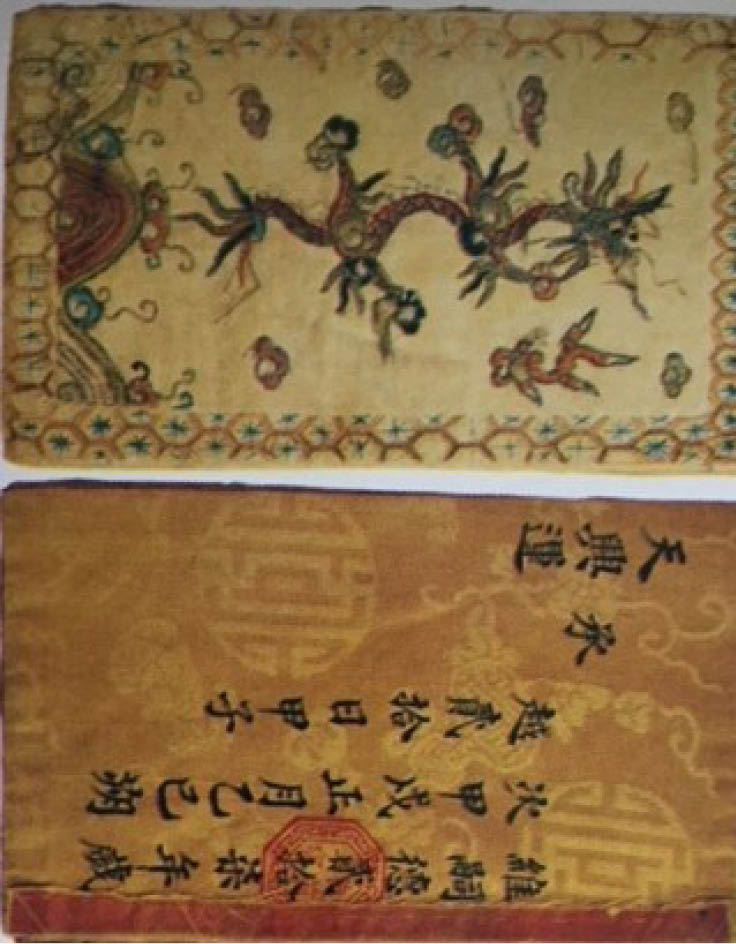 維嗣德貳拾柒年歲
次甲戌正月乙巳朔
越貳拾日甲子
承
天興運